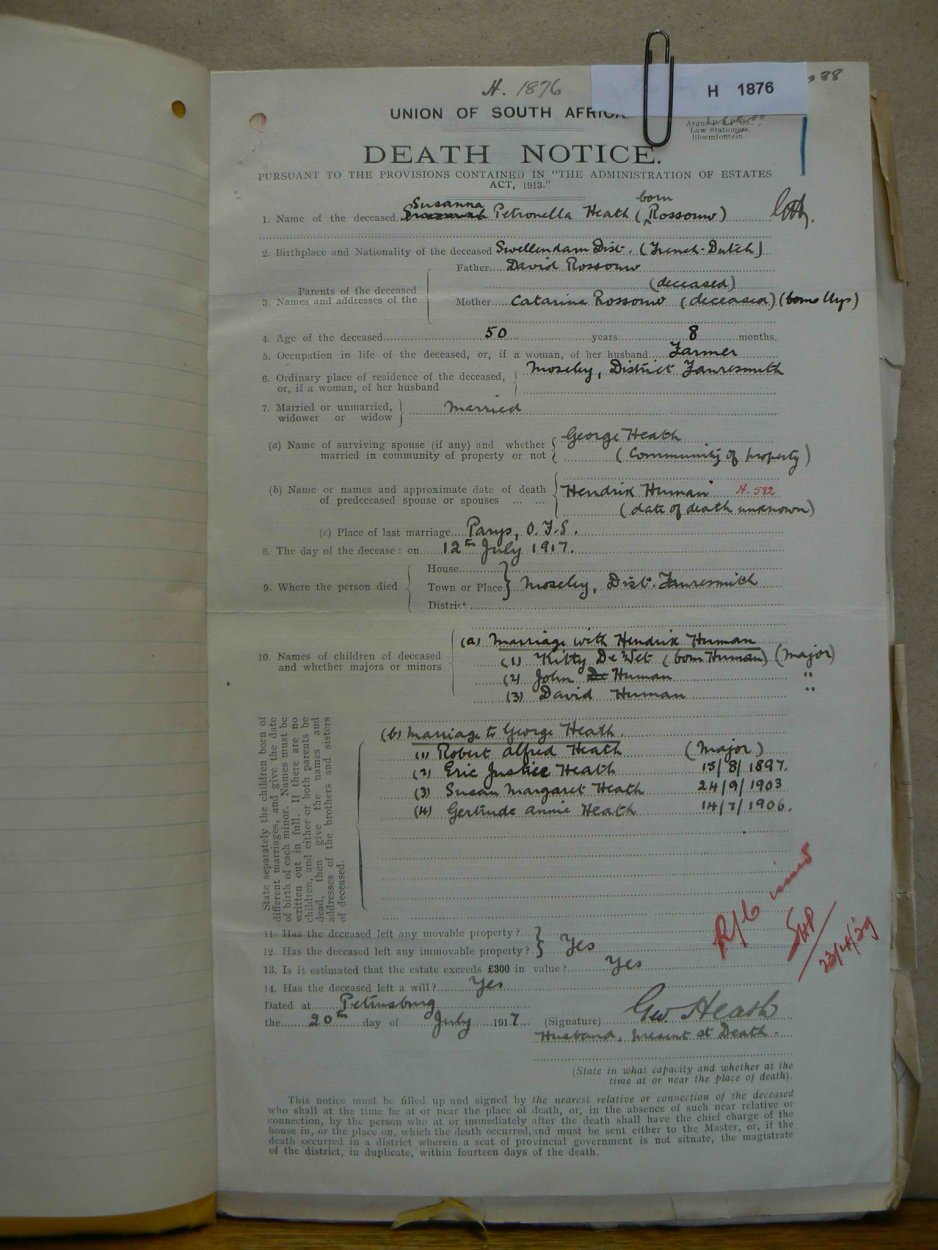 H. 1876
H 1876
38
UNION OF SOUTH AFRICA
Law Stationers,
Bloemfontein.
DEATH NOTICE.
PURSUANT TO THE PROVISIONS CONTAINED IN "THE ADMINISTRATION OF ESTATES
ACT, 1913."
1. Name of the deceased Susanna Petronella Heath (born Rossouw)
2. Birthplace and Nationality of the deceased Swellendam Dist. (French-Dutch)
Father David Rossouw
(deceased)
Parents of the deceased
3. Names and addresses of the
Mother Catarina Rossouw (deceased) (born Uys)
4. Age of the deceased 50 years 8 months.
5. Occupation in life of the deceased, or, if a woman, of her husband Farmer
6. Ordinary place of residence of the deceased, or, if a woman, of her husband Moseley, District Fauresmith
7. Married or unmarried, widower or widow Married
(a) Name of surviving spouse (if any) and whether George Heath
married in community of property or not (Community of property)
(b) Name or names and approximate date of death Hendrik Human H. 582
of predeceased spouse or spouses ... ... (date of death unknown)
(c) Place of last marriage Parys, O.F.S.
8. The day of the decease: on 12th July 1917.
9. Where the person died
House
Town or Place Moseley, Dist. Fauresmith
District
10. Names of children of deceased
and whether majors or minors
(a) Marriage with Hendrik Human
(1) Kitty De Wet (born Human) (Major)
(2) John De Human "
(3) David Human "
State separately the children born of
different marriages, and give the date
of birth of each minor. Names must be
written out in full. If there are no
children, and either or both parents be
dead, then give the names and
addresses of the brothers and sisters
of deceased.
(b) Marriage to George Heath.
(1) Robert Alfred Heath (Major)
(2) Eric Justice Heath 15/8/1897.
(3) Susan Margaret Heath 24/9/1903
(4) Gertrude Annie Heath 14/7/1906.
11. Has the deceased left any movable property?
12. Has the deceased left any immovable property? Yes
13. Is it estimated that the estate exceeds £300 in value? Yes
14. Has the deceased left a will? Yes
issued
Dated at Petrusburg
the 20th day of July 1917 (Signature) Geo Heath
Husband, present at Death.
(State in what capacity and whether at the
time at or near the place of death).
This notice must be filled up and signed by the nearest relative or connection of the deceased
who shall at the time be at or near the place of death, or, in the absence of such near relative or
connection, by the person who at or immediately after the death shall have the chief charge of the
house in, or the place on, which the death occurred, and must be sent either to the Master, or, if the
death occurred in a district wherein a seat of provincial government is not situate, the magistrate
of the district, in duplicate, within fourteen days of the death.